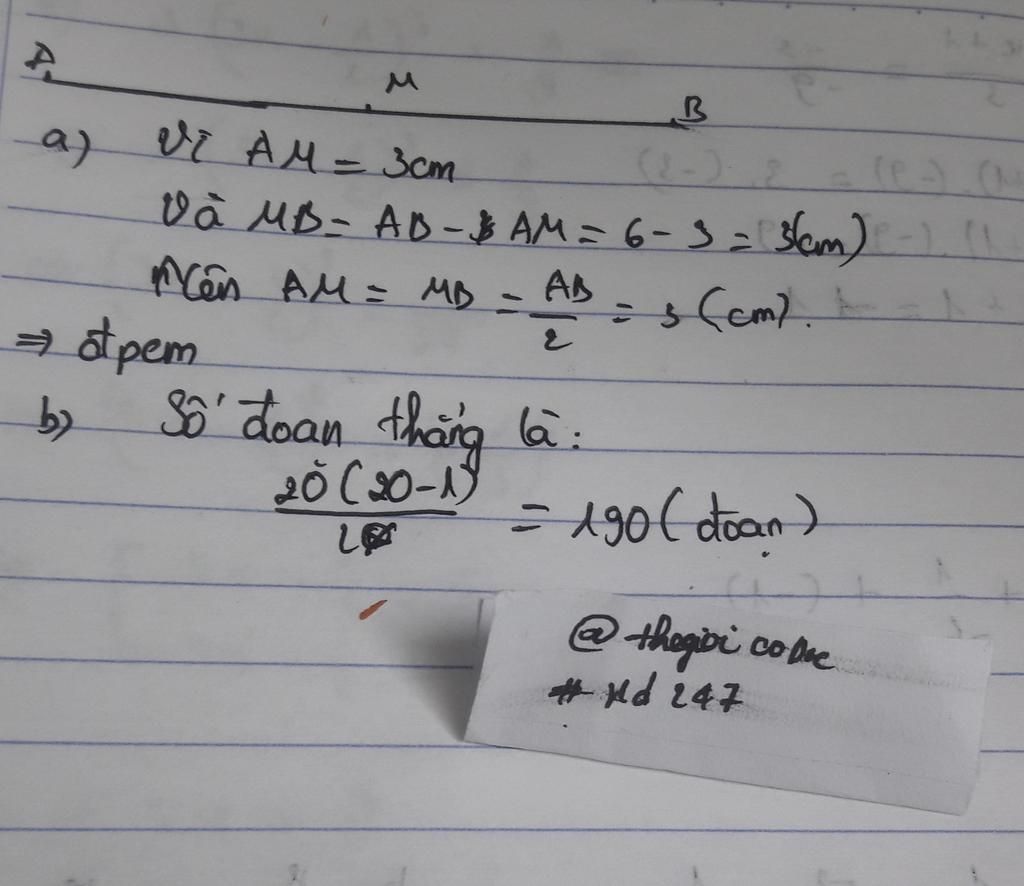 A M B
a) Vì AM = 3cm
Và MB = AB - AM = 6 - 3 = 3(cm)
Nên AM = MB = AB/2 = 3 (cm).
⇒ đfpcm
b) Số đoan thẳng là:
20(20-1)/2 = 190 (đoạn)
@ thegioi
# Hd 247